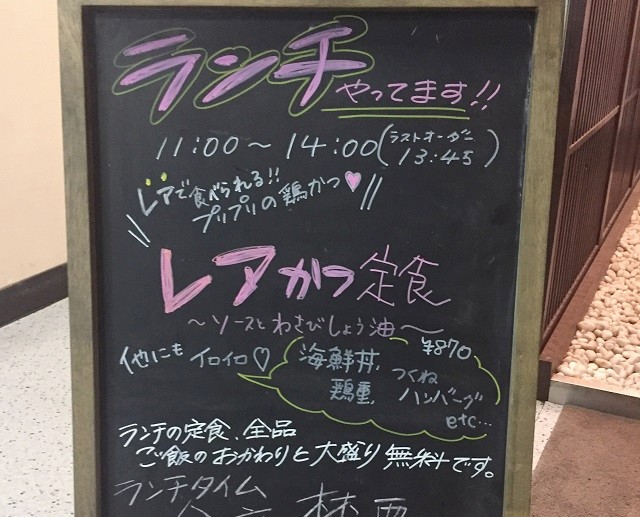 ランチ やってます!!
11:00〜14:00(ラストオーダー 13:45)
レアで食べられる!!
プリプリの鶏かつ♥
レアかつ定食
〜ソースとわさびしょう油〜
¥870
他にもイロイロ♡
海鮮丼、つくね
鶏重、ハンバーグ
etc…
ランチの定食、全品
ご飯のおかわりと大盛り無料です。
ランチタイム